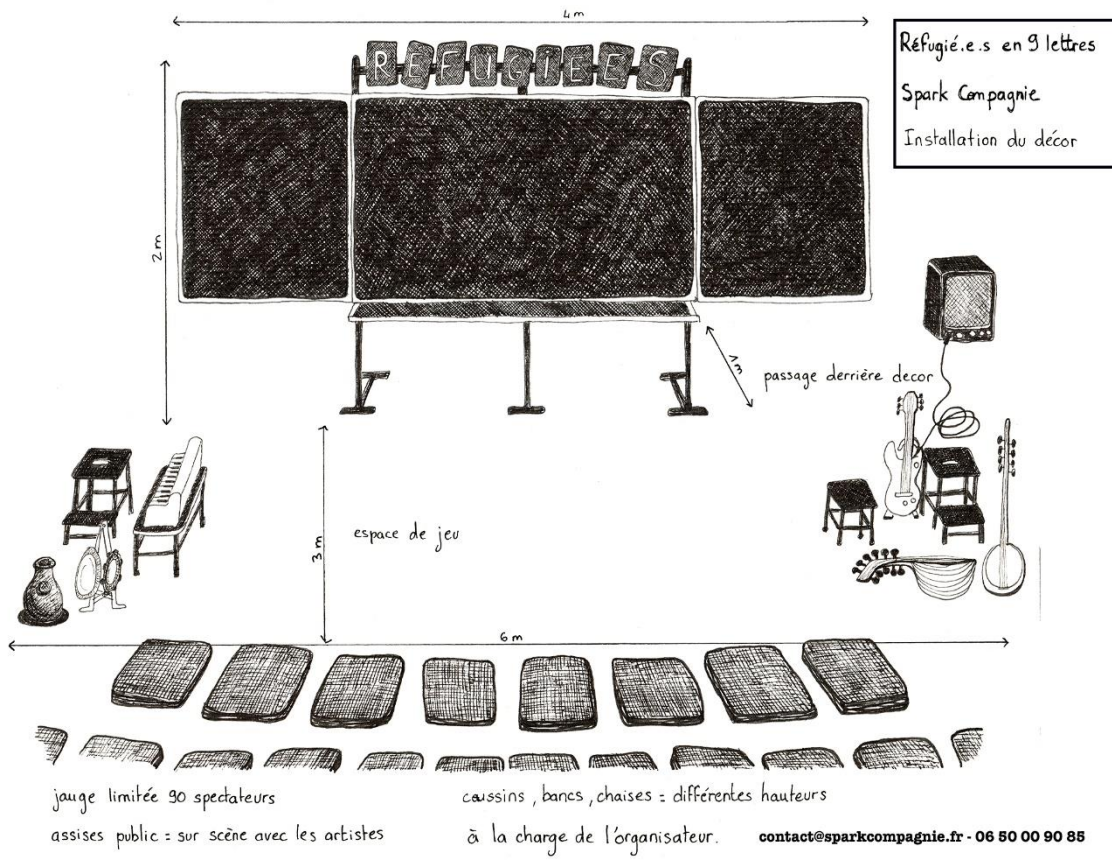 4m
Réfugié.e.s en 9 lettres
Spark Compagnie
Installation du décor
REFUGIEES
2m
1m
passage derrière decor
3m
espace de jeu
6m
jauge limitée 90 spectateurs
assises public = sur scène avec les artistes
coussins, bancs, chaises = différentes hauteurs
à la charge de l'organisateur.
contact@sparkcompagnie.fr - 06 50 00 90 85